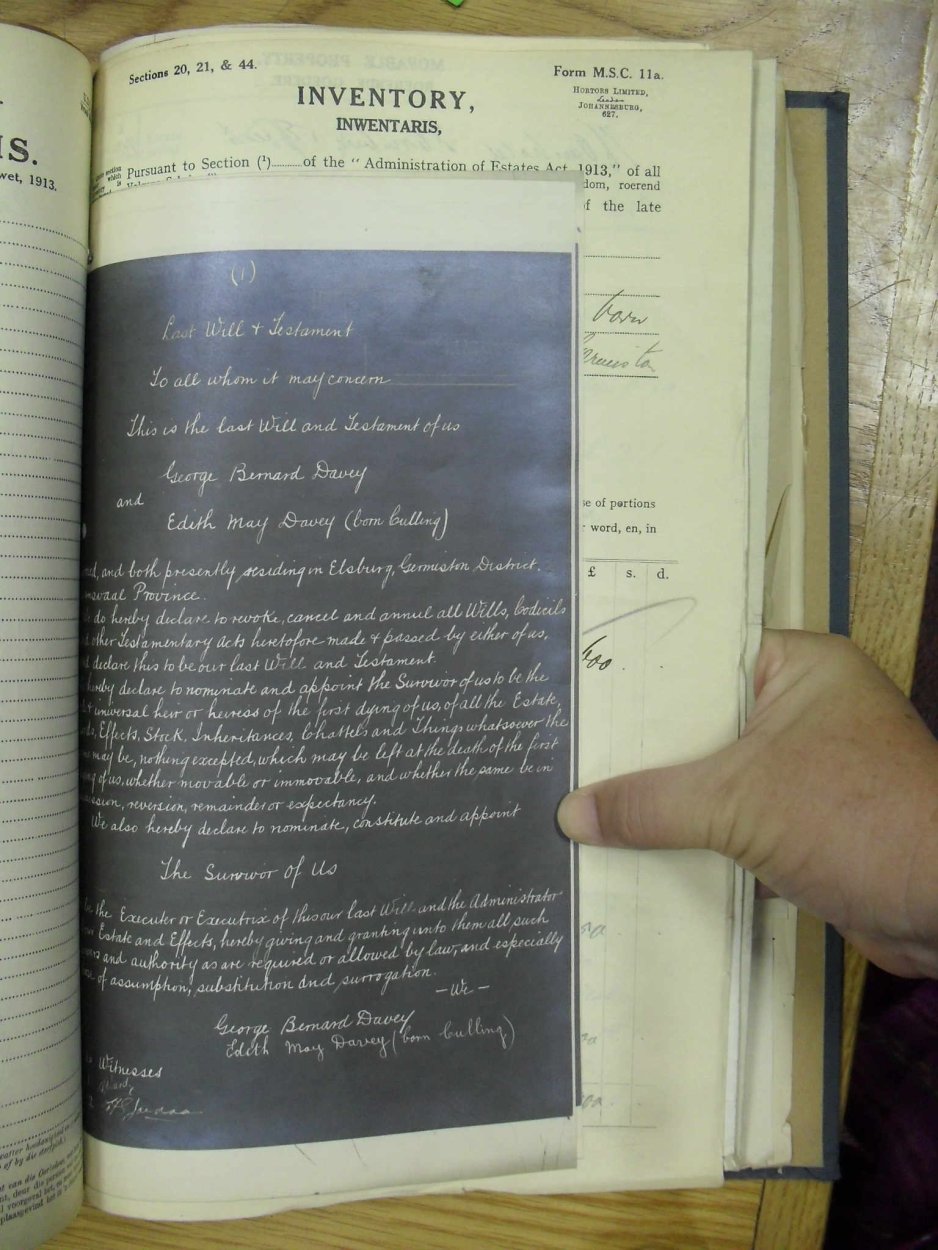 IS.
wet, 1913.
Sections 20, 21, & 44.
Form M.S.C. 11a.
HORTORS LIMITED,
JOHANNESBURG,
627.
INVENTORY,
INWENTARIS,
Pursuant to Section (¹)..........of the "Administration of Estates Act, 1913," of all
dom, roerend
of the late
born
se of portions
word, en, in
£ s. d.
(1)
Last Will & Testament
To all whom it may concern
This is the last Will and Testament of us
George Bernard Davey
and
Edith May Davey (born Culling)
ied, and both presently residing in Elsburg, Germiston District,
nsvaal Province.
do hereby declare to revoke, cancel and annul all Wills, Codicils
other Testamentary Acts heretofore made & passed by either of us,
d declare this to be our last Will and Testament.
hereby declare to nominate and appoint the Survivor of us to be the
& universal heir or heiress of the first dying of us, of all the Estate,
ods, Effects, Stock, Inheritances, Chattels and Things whatsoever the
me may be, nothing excepted, which may be left at the death of the first
ing of us, whether movable or immovable, and whether the same be in
session, reversion, remainder or expectancy.
We also hereby declare to nominate, constitute and appoint
The Survivor of Us
be the Executer or Executrix of this our last Will and the Administrator
our Estate and Effects, hereby giving and granting unto them all such
powers and authority as are required or allowed by law, and especially
of assumption, substitution and surrogation.
— We —
George Bernard Davey
Edith May Davey (born Culling)
Witnesses